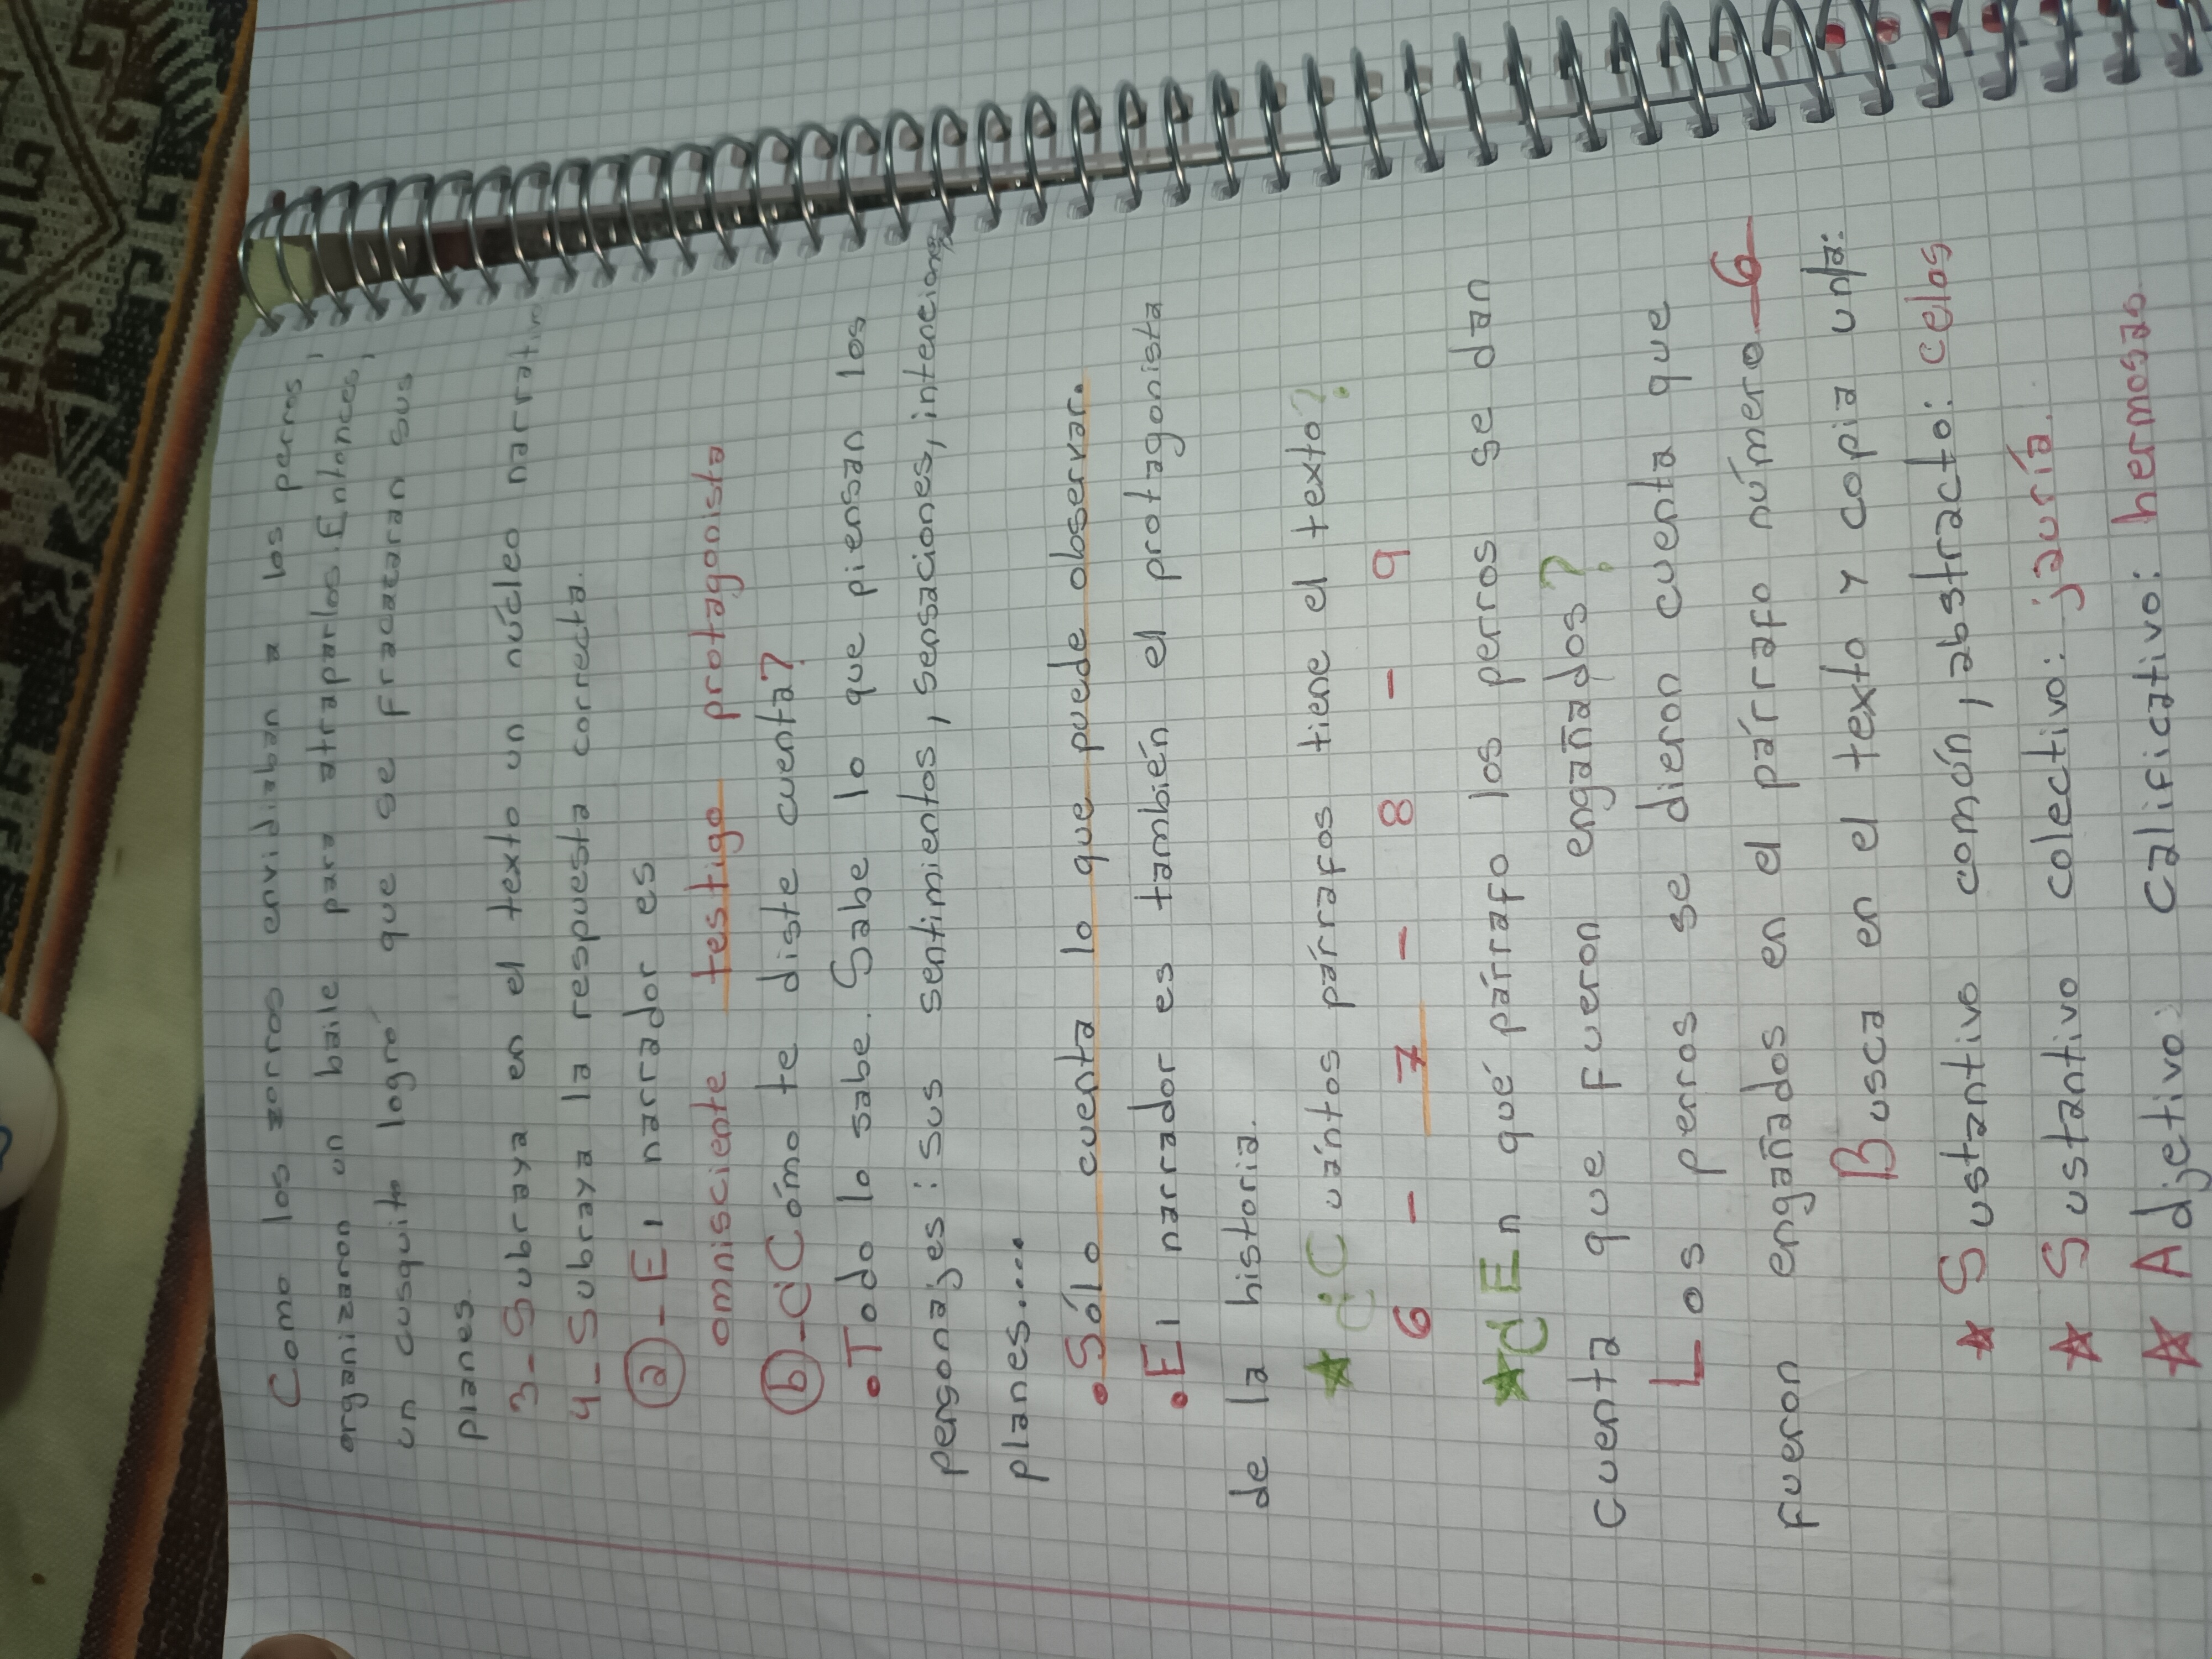 Como los zorros envidiaban a los perros,
organizaron un baile para atraparlos. Entonces,
un cusquito logró que se fracazaran sus
planes.
3- Subraya en el texto un núcleo
4- Subraya la respuesta correcta.
a - El narrador es
omnisciente testigo protagonista
b - ¿Cómo te diste cuenta?
• Todo lo sabe. Sabe lo que piensan los
personajes: sus sentimientos, sensaciones, intenciones,
planes....
• Sólo cuenta lo que puede observar.
• El narrador es también el protagonista
de la historia.
¿Cuántos párrafos tiene el texto?
6 - 7 - 8 - 9
¿En qué párrafo los perros se dan
cuenta que fueron engañados?
Los perros se dieron cuenta que
fueron engañados en el párrafo número 6
Busca en el texto y copia un/a:
Sustantivo común, abstracto: celos
Sustantivo colectivo: jauría.
Adjetivo: Calificativo: hermosas